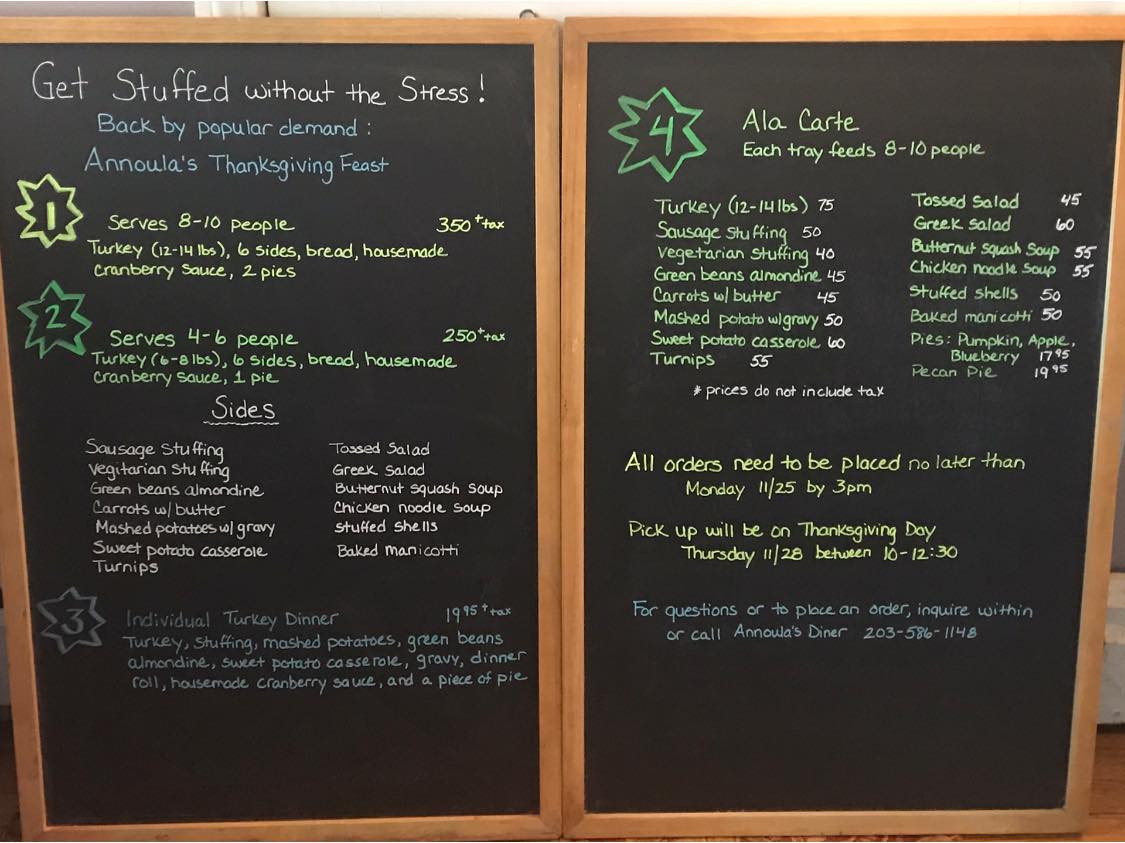 Get Stuffed without the Stress!
Back by popular demand:
Annoula's Thanksgiving Feast
1
Serves 8-10 people 350 + tax
Turkey (12-14 lbs), 6 sides, bread, housemade
cranberry sauce, 2 pies
2
Serves 4-6 people 250 + tax
Turkey (6-8 lbs), 6 sides, bread, housemade
cranberry sauce, 1 pie
Sides
Sausage Stuffing Tossed Salad
Vegitarian Stuffing Greek Salad
Green beans almondine Butternut squash soup
Carrots w/ butter Chicken noodle soup
Mashed potatoes w/ gravy Stuffed shells
Sweet potato casserole Baked manicotti
Turnips
3
Individual Turkey Dinner 19 95 + tax
Turkey, stuffing, mashed potatoes, green beans
almondine, sweet potato casserole, gravy, dinner
roll, housemade cranberry sauce, and a piece of pie
4
Ala Carte
Each tray feeds 8-10 people
Turkey (12-14 lbs) 75
Sausage Stuffing 50
Vegetarian Stuffing 40
Green beans almondine 45
Carrots w/ butter 45
Mashed potato w/ gravy 50
Sweet potato casserole 60
Turnips 55
Tossed Salad 45
Greek salad 60
Butternut squash Soup 55
Chicken noodle soup 55
Stuffed shells 50
Baked manicotti 50
Pies: Pumpkin, Apple,
Blueberry 17 95
Pecan Pie 19 95
* prices do not include tax
All orders need to be placed no later than
Monday 11/25 by 3pm
Pick up will be on Thanksgiving Day
Thursday 11/28 between 10-12:30
For questions or to place an order, inquire within
or call Annoula's Diner 203-586-1148